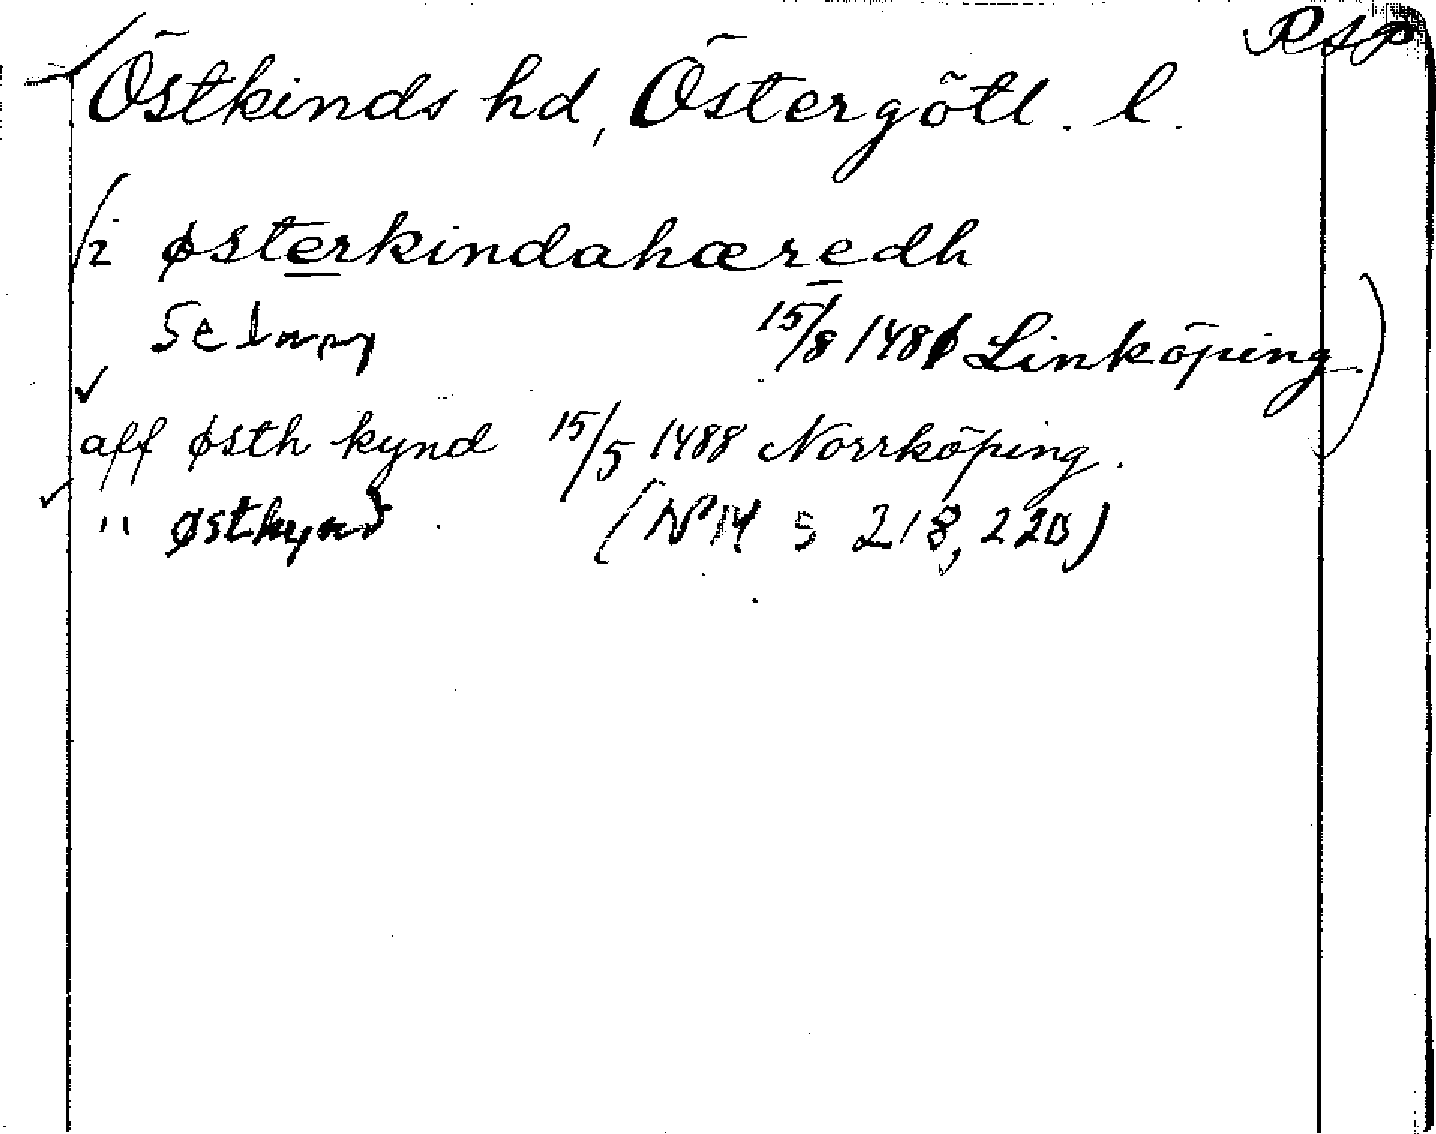 RAP
Östkinds hd, Östergötl. l.
(i østerkindahæredh
Se 15/8 1481 Linköping)
aff østh kynd 15/5 1488 Norrköping.
" østkynd (Nr 14 s 218, 220)